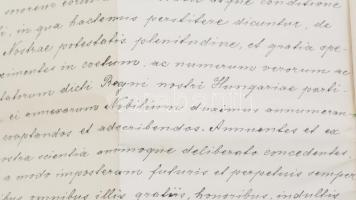 morem eorum atque conditione
i, in qua hactenus perstitere dicuntur, de
Nostrae potestatis plenitudine, et gratia spe-
eximentes in coetum, ac numerum verorum ac
tatorum dicti Regni nostri Hungariae parti-
ei annexarum Nobilium duximus annumeran-
cooptandos et adscribendos. Annuentes et ex
ostra scientia animoque deliberato concedentes,
a modo imposterum futuris et perpetuis semper
bus omnibus illis gratiis, honoribus, indultis